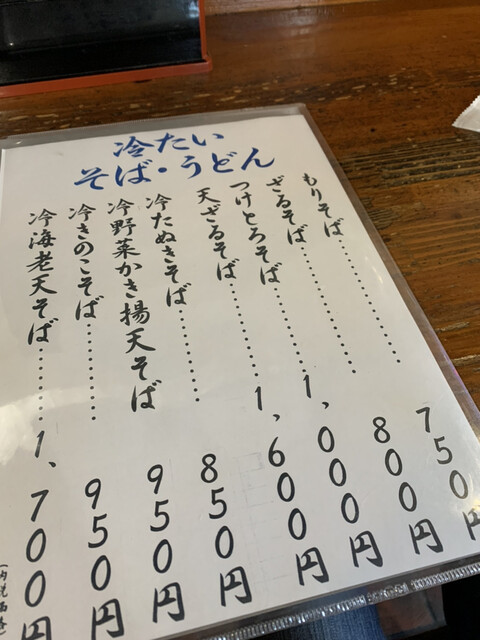 冷たい
そば・うどん
もりそば…………750円
ざるそば…………800円
つけとろそば…………1,000円
天ざるそば…………1,600円
冷たぬきそば…………850円
冷野菜かき揚天そば 950円
冷きのこそば…………950円
冷海老天そば…………1,700円